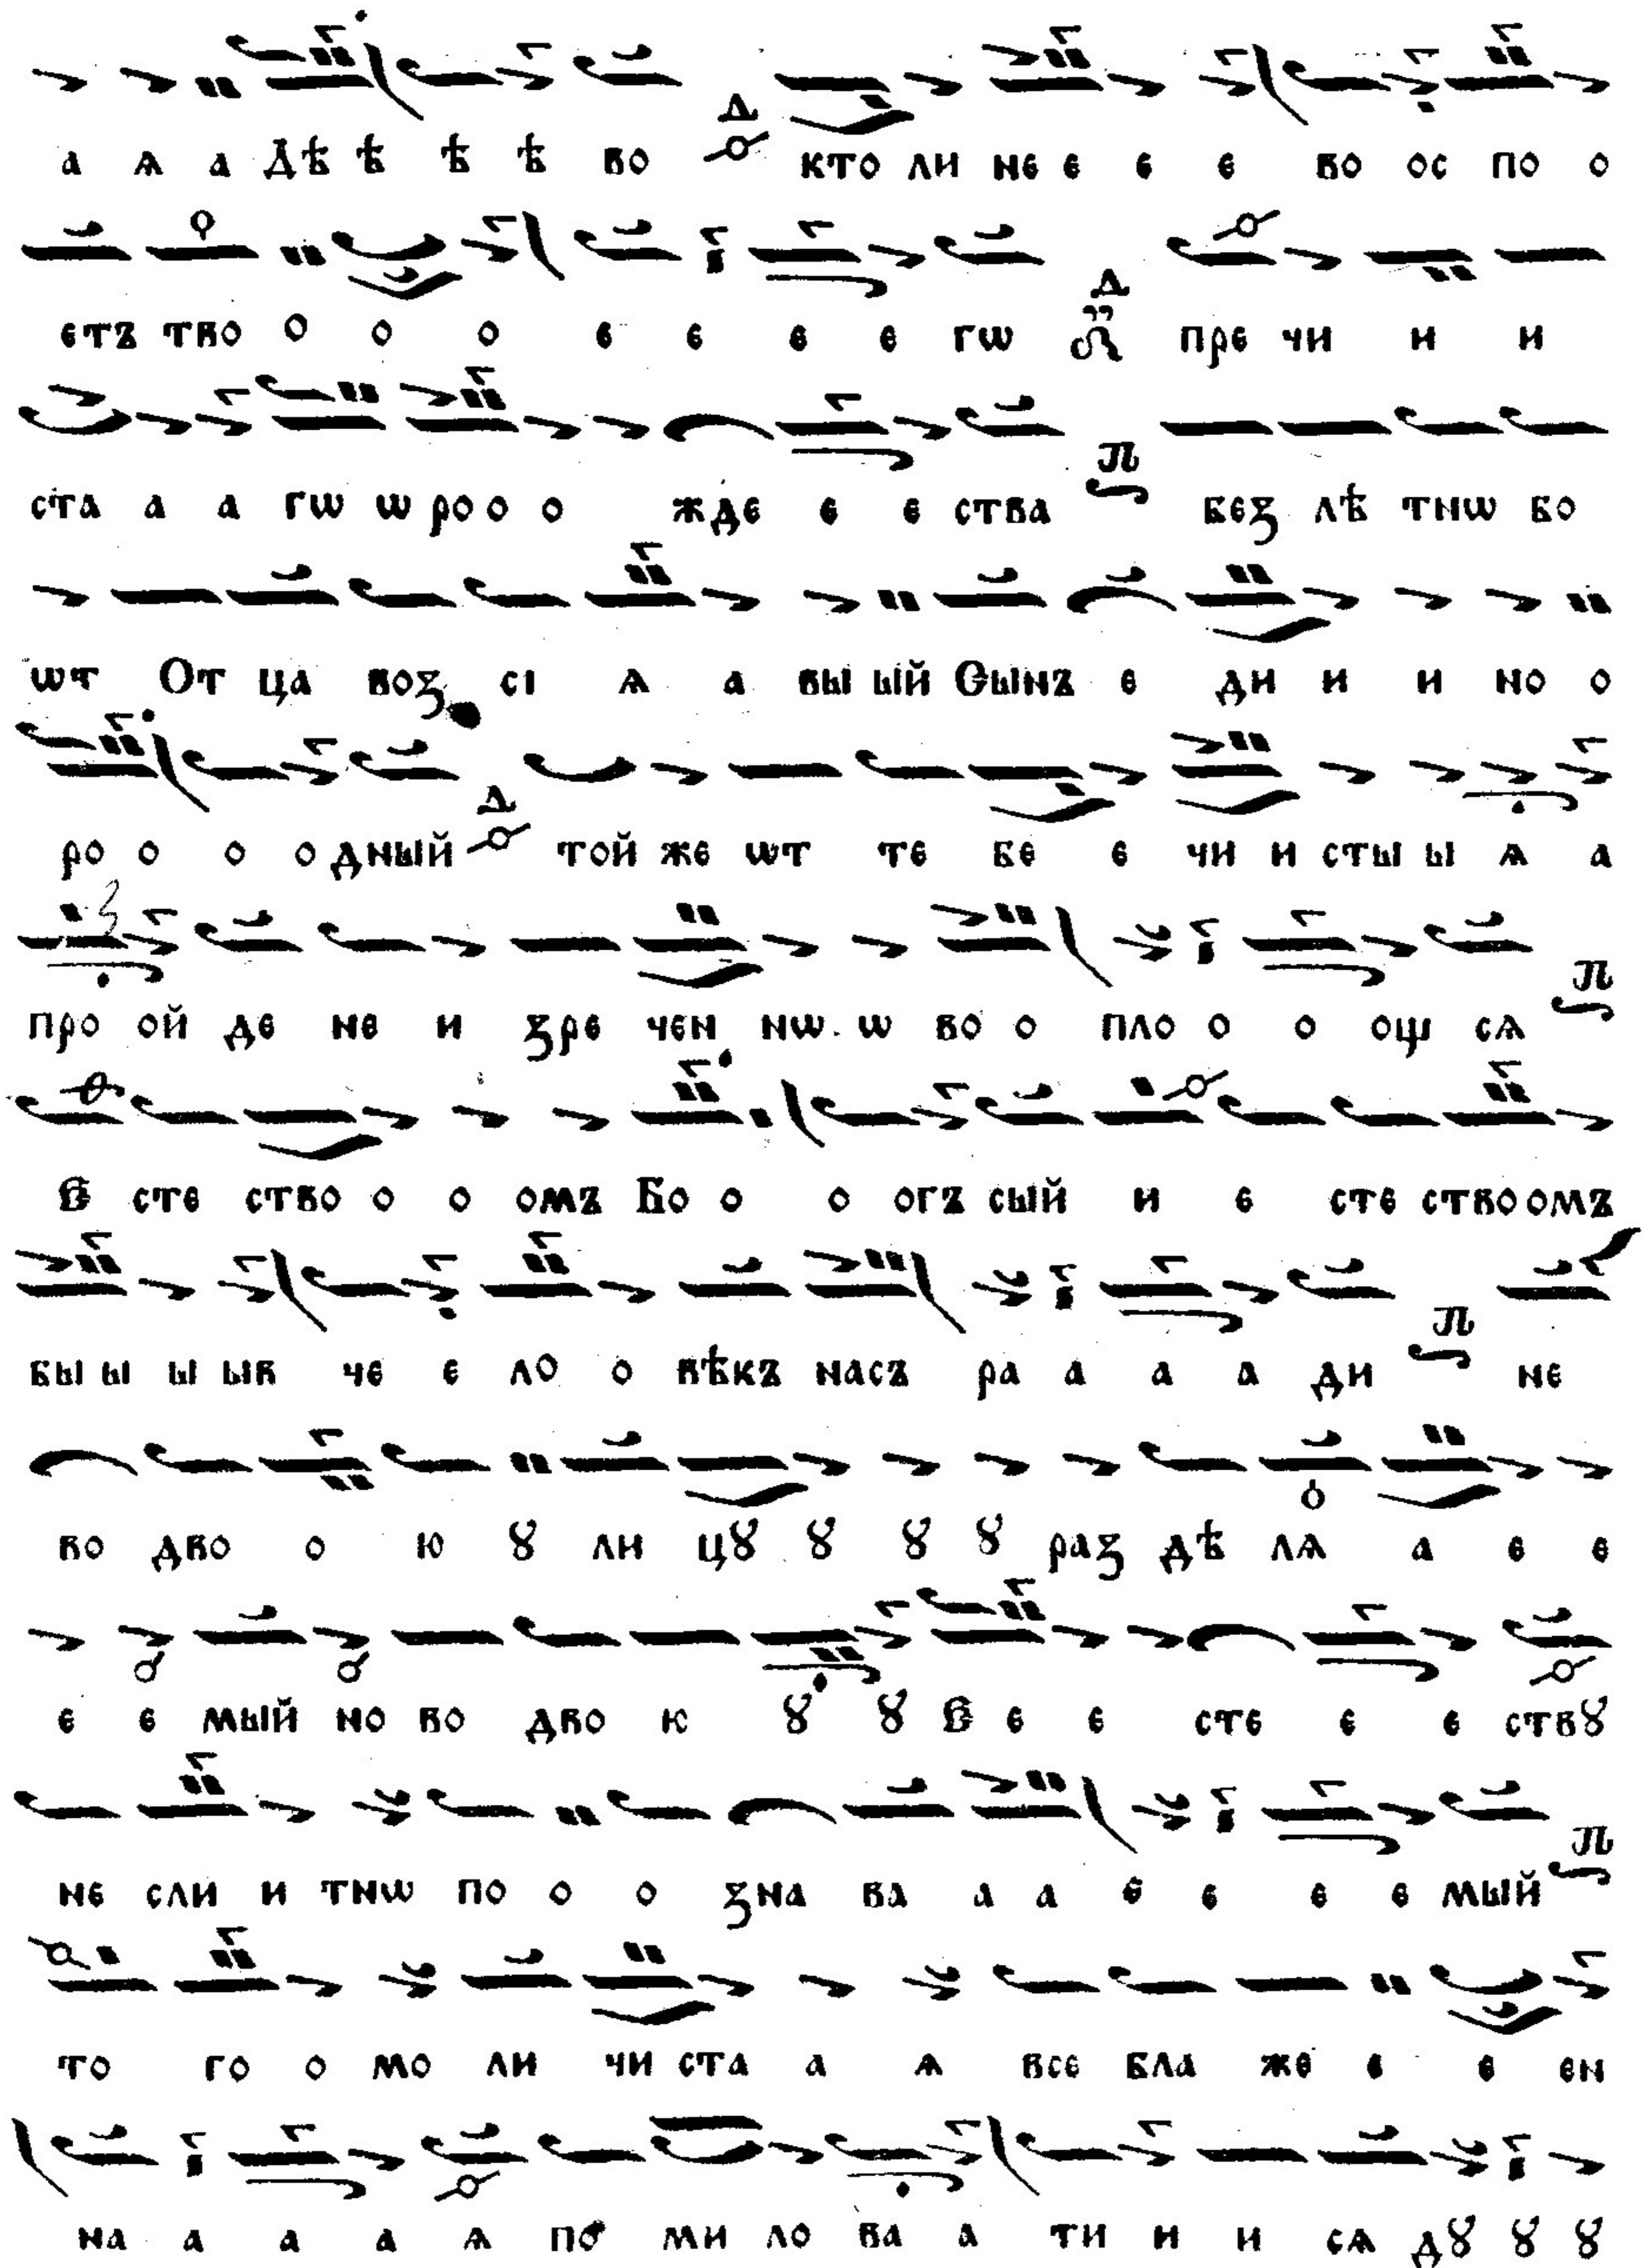 а ѧ а Дѣ ѣ ѣ ѣ во Д кто ли не е е е во ос по о
етъ тво о о о е е е е гѡ Д пре чи и и
ста а а гѡ ѡ ро о о жде е е ства П без лѣ тнѡ бо
ѡт От ца воз сі ѧ а вы ый Сынъ е ди и и но о
ро о о о дный Д той же ѡт те бе е чи и сты ы ѧ а
про ой де не и зре чен нѡ ѡ во о пло о о ощ сѧ П
Е сте ство о о омъ Бо о о огъ сый и е сте ство омъ
бы ы ы ыв че е ло о вѣкъ насъ ра а а а ди П не
во дво о ю ꙋ ли цꙋ ꙋ ꙋ ꙋ раз дѣ лѧ а е е
е е мый но во дво ю ꙋ ꙋ Е е е сте е е ствꙋ
не сли и тнѡ по о о зна ва а а е е е е мый П
то го о мо ли чи ста а ѧ все бла же е е ен
на а а а ѧ по ми ло ва а ти и и сѧ дꙋ ꙋ ꙋ